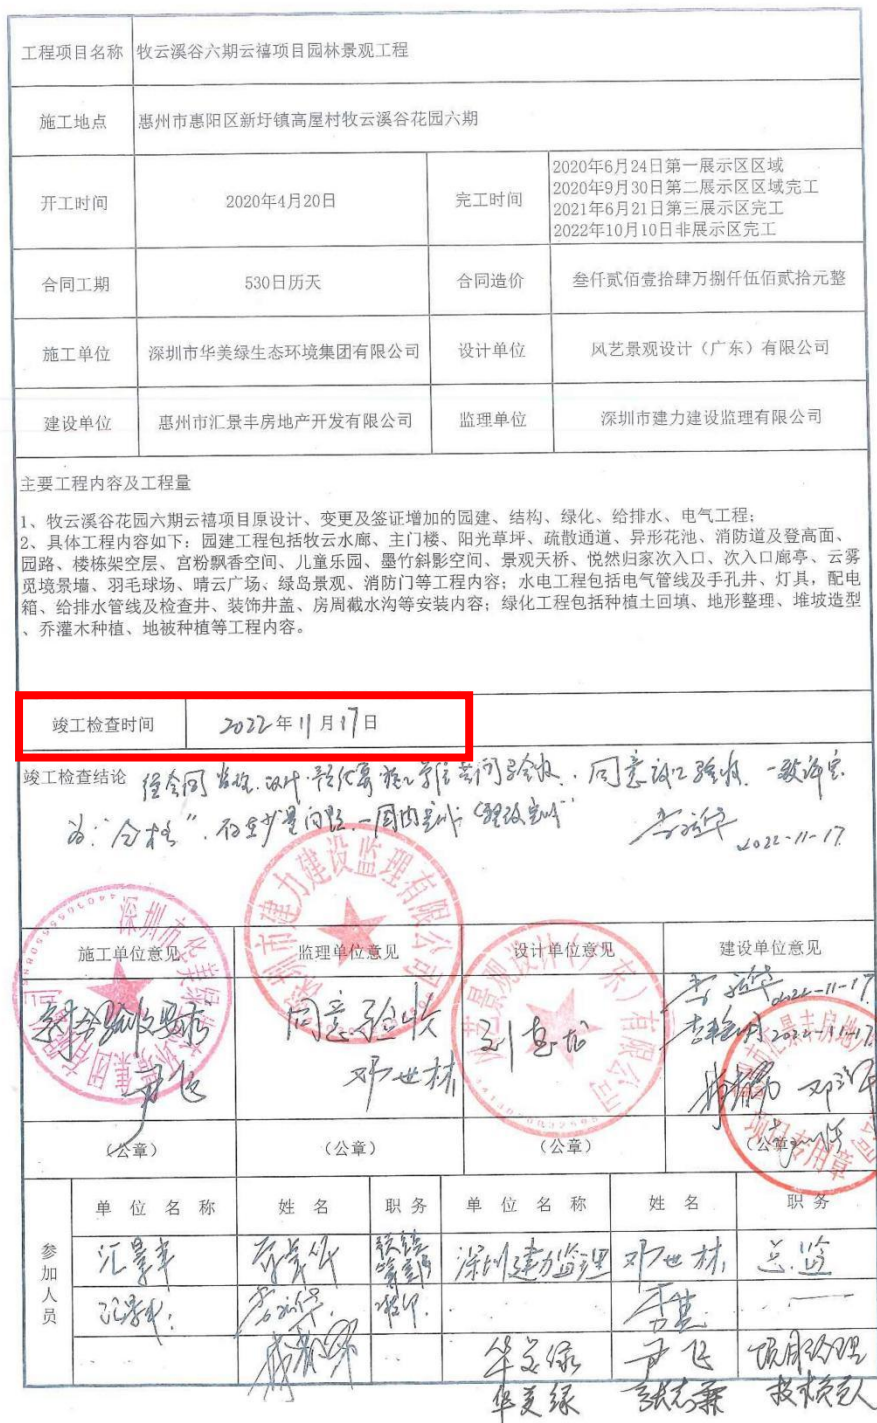 工程项目名称 牧云溪谷六期云禧项目园林景观工程
施工地点 惠州市惠阳区新圩镇高屋村牧云溪谷花园六期
开工时间 2020年4月20日 完工时间
2020年6月24日第一展示区区域
2020年9月30日第二展示区区域完工
2021年6月21日第三展示区完工
2022年10月10日非展示区完工
合同工期 530日历天 合同造价 叁仟贰佰壹拾肆万捌仟伍佰贰拾元整
施工单位 深圳市华美绿生态环境集团有限公司 设计单位 风艺景观设计（广东）有限公司
建设单位 惠州市汇景丰房地产开发有限公司 监理单位 深圳市建力建设监理有限公司
主要工程内容及工程量
1、牧云溪谷花园六期云禧项目原设计、变更及签证增加的园建、结构、绿化、给排水、电气工程；
2、具体工程内容如下：园建工程包括牧云水廊、主门楼、阳光草坪、疏散通道、异形花池、消防道及登高面、
园路、楼栋架空层、宫粉飘香空间、儿童乐园、墨竹斜影空间、景观天桥、悦然归家次入口、次入口廊亭、云雾
觅境景墙、羽毛球场、晴云广场、绿岛景观、消防门等工程内容；水电工程包括电气管线及手孔井、灯具，配电
箱、给排水管线及检查井、装饰井盖、房周截水沟等安装内容；绿化工程包括种植土回填、地形整理、堆坡造型
、乔灌木种植、地被种植等工程内容。
竣工检查时间 2022年11月17日
竣工检查结论 同意竣工验收，一致评定
为：“合格”. 2022-11-17
深圳市建力建设监理有限公司
施工单位意见 监理单位意见 设计单位意见 建设单位意见
2022-11-17
同意验收 2022-11-17
邓世林
（公章） （公章） （公章） （公章）
项目专用章
参加人员
单位名称 姓名 职务 单位名称 姓名 职务
汇景丰 深圳建力监理 邓世林 总监
华美绿 尹飞 项目经理
华美绿 技术负责人